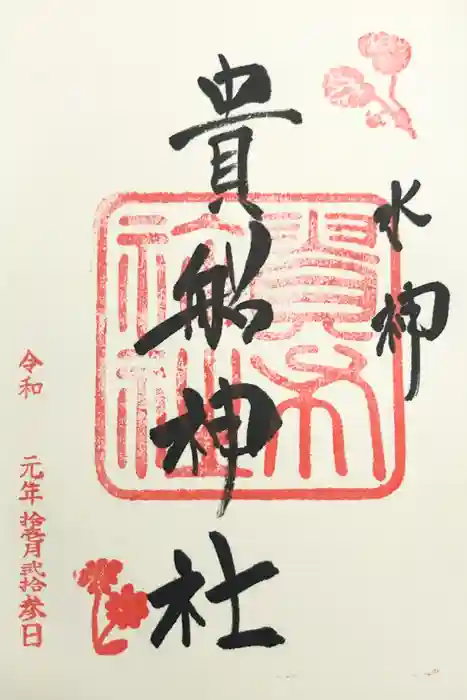 水神
貴船神社
令和 元年拾壱月弐拾参日